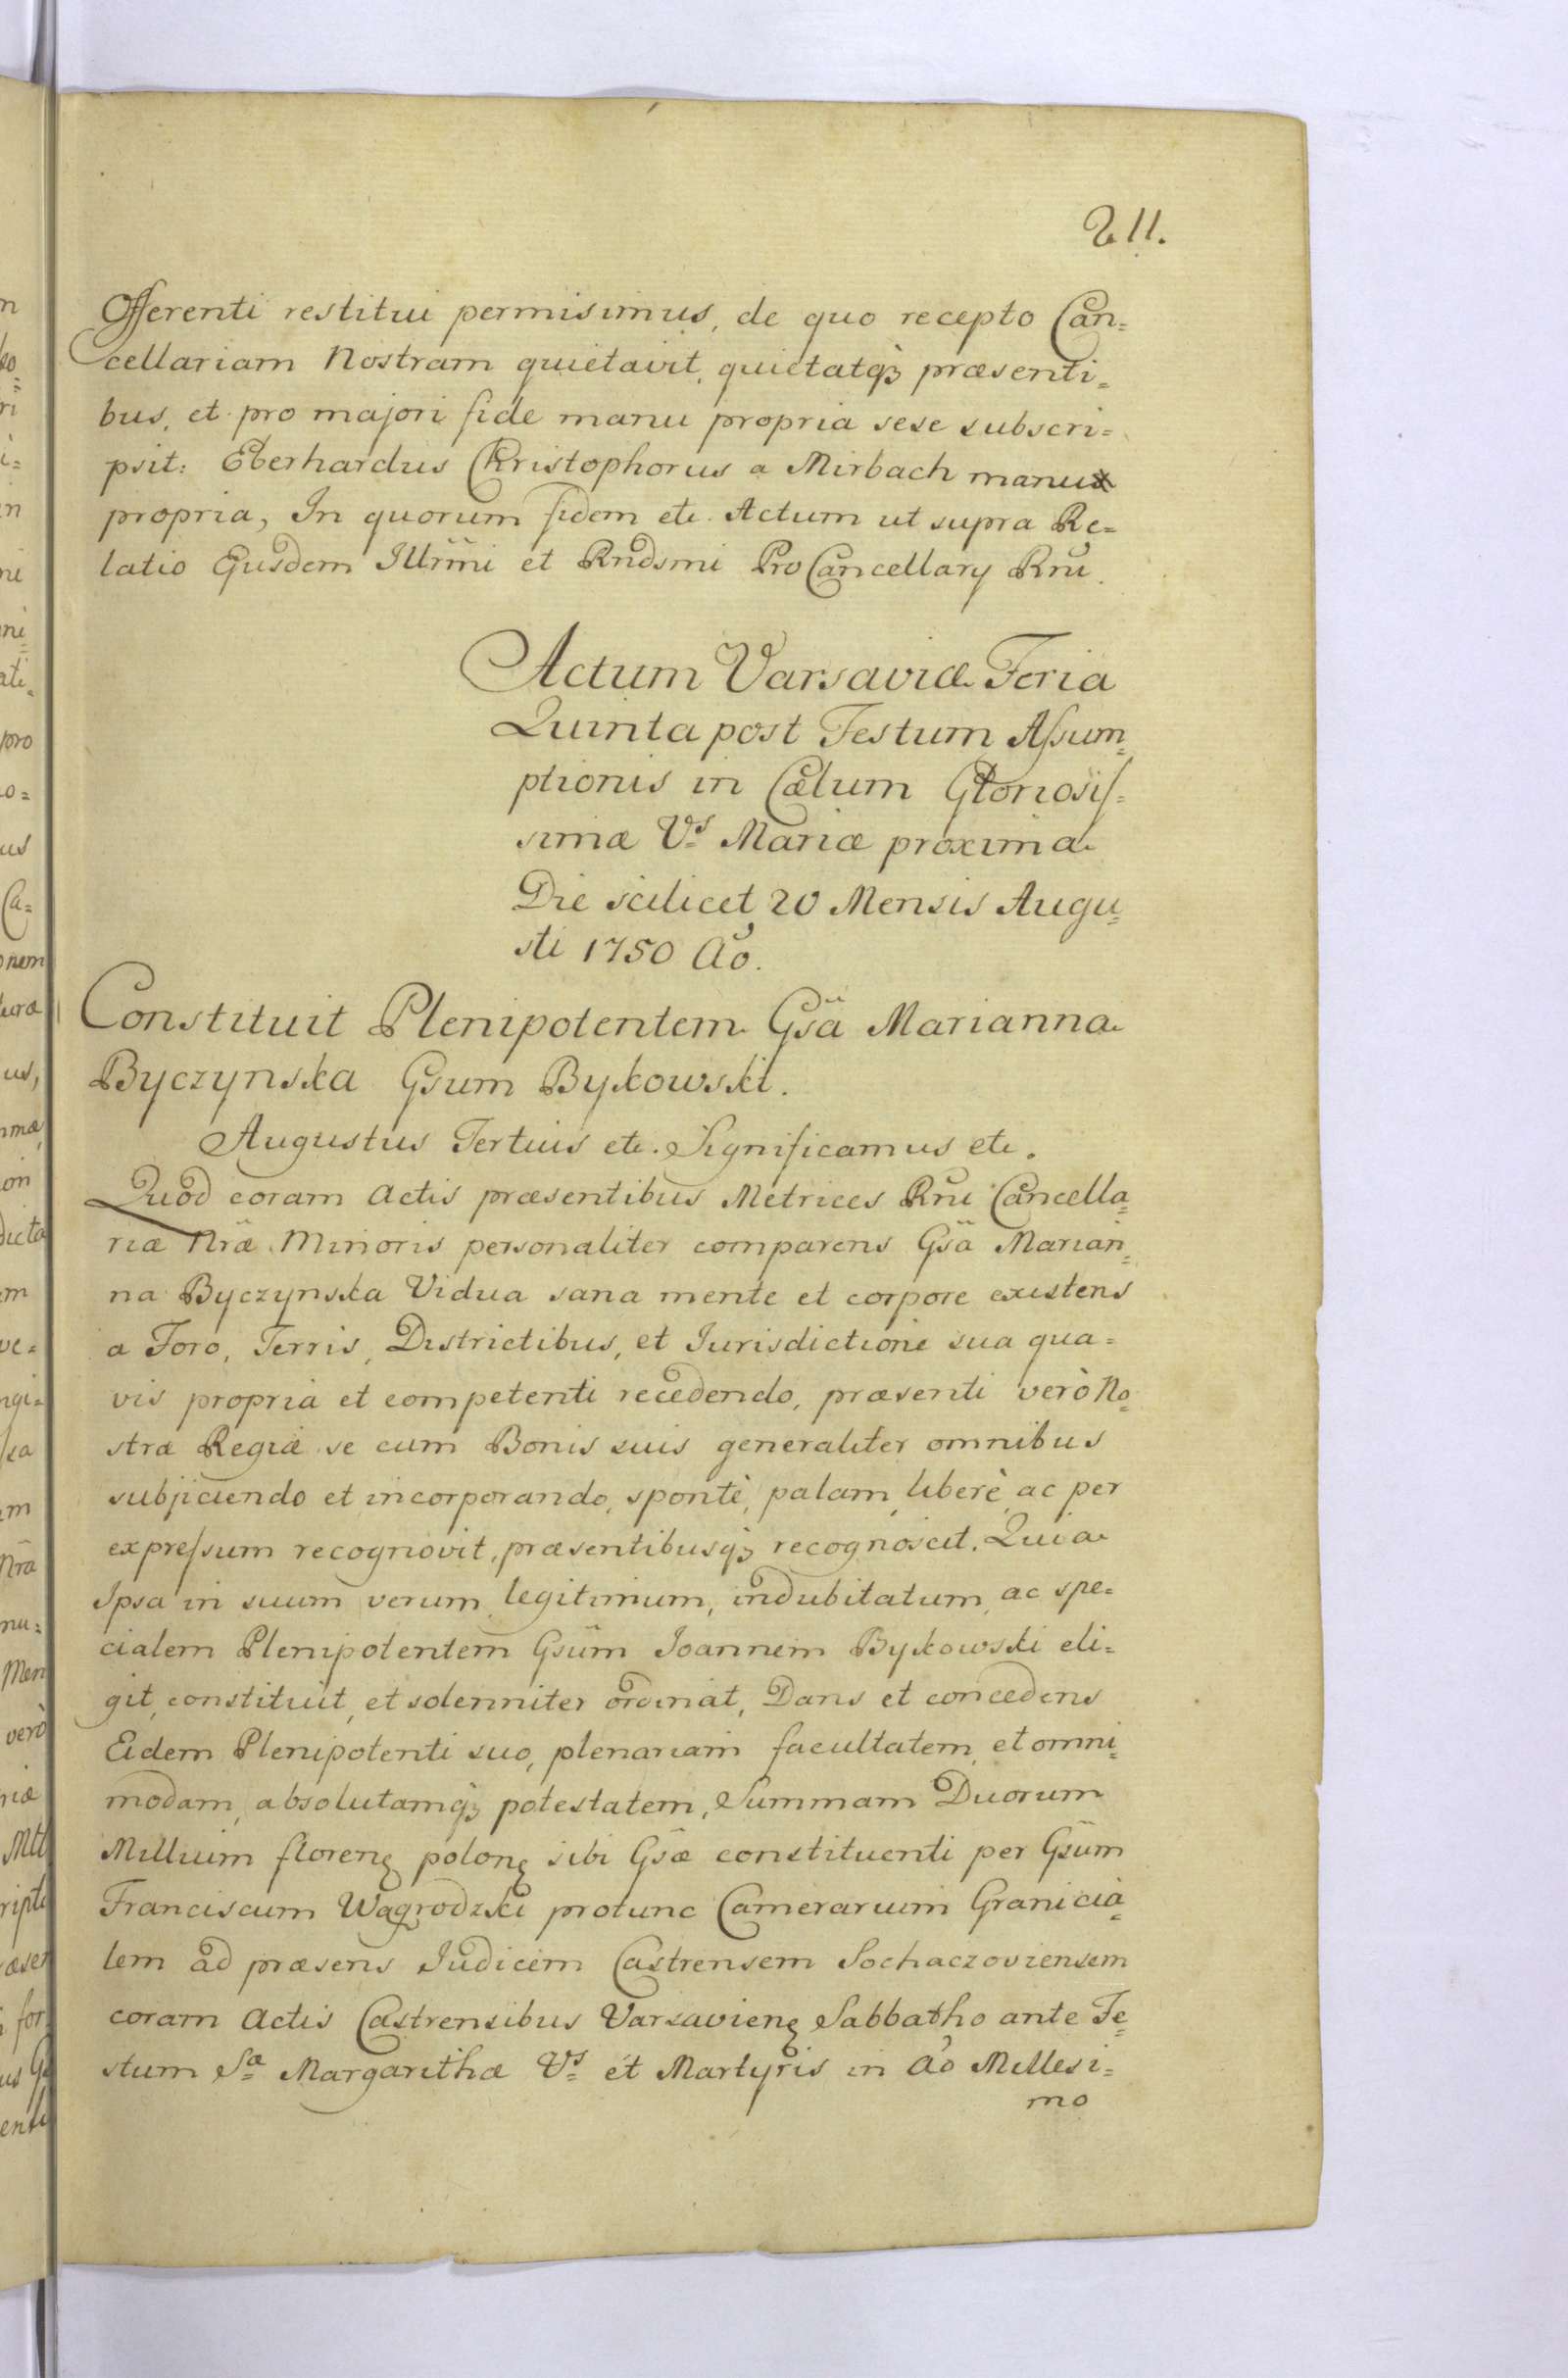 211.
Offerenti restitui permisimus, de quo recepto Can=
cellariam Nostram quietavit, quietatq3 præsenti=
bus, et pro majori fide manu propria sese subscri=
psit: Eberhardus Christophorus a Mirbach manu
propria, In quorum fidem etc. Actum ut supra Re=
latio Ejusdem Illrmi et Rndsmi ProCancellary Rnu.
Actum Varsaviæ Feria
Quinta post Festum Assum=
ptionis in Cælum Gloriosis=
simæ V̲s Mariæ proxima
Die scilicet 20 Mensis Augu=
sti 1750 Ao.
Constituit Plenipotentem Gsa Marianna
Byczynska Gsum Bykowski.
Augustus Tertius etc. Significamus etc.
Quod coram Actis præsentibus Metrices Rnu Cancella=
riæ Nræ Minoris personaliter comparens Gsa Marian=
na Byczynska Vidua sana mente et corpore existens
a Foro, Terris, Districtibus, et Iurisdictione sua qua=
vis propria et competenti recedendo, præsenti verò No=
stræ Regiæ se cum Bonis suis generaliter omnibus
subjiciendo et incorporando, spontè, palam, liberè, ac per
expressum recognovit, præsentibusq3 recognoscit. Quia
Ipsa in suum verum, legitimum, indubitatum, ac spe=
cialem Plenipotentem Gsum Ioannem Bykowski eli=
git, constituit, et solenniter ordinat, Dans et concedens
Eidem Plenipotenti suo, plenariam facultatem, et omni=
modam, absolutamq3 potestatem, Summam Duorum
Millium florenę polonę sibi Gsæ constituenti per Gsum
Franciscum Wagrodzki protunc Camerarium Granicia=
lem ad præsens Iudicem Castrensem Sochaczoviensem
coram Actis Castrensibus Varsavienę Sabbatho ante Fe=
stum Sæ Margarithæ Vs et Martyris in Ao Millesi=
mo